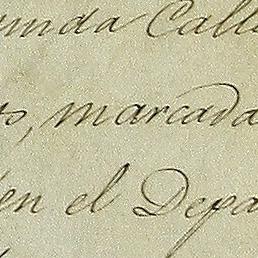 unda Calle
os, marcada
en el Depa